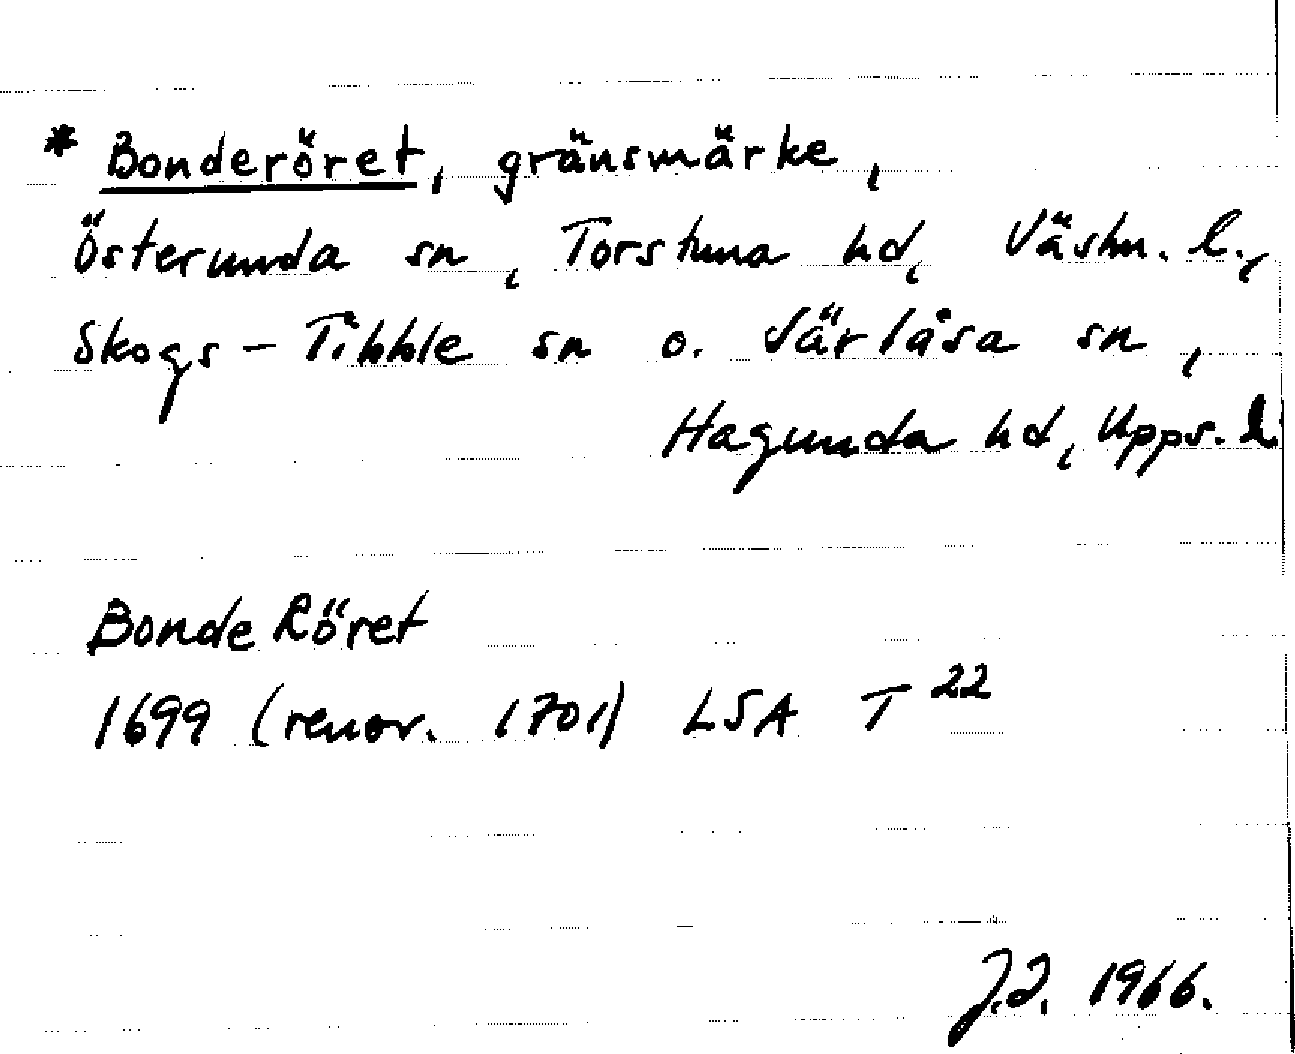 * Bonderöret, gränsmärke,
Österunda sn, Torstuna hd, Västm. l.,
Skogs-Tibble sn o. Järlåsa sn,
Hagunda hd, Upps. l.
Bonde Röret
1699 (renov. 1701) LSA T 22
J.I. 1966.